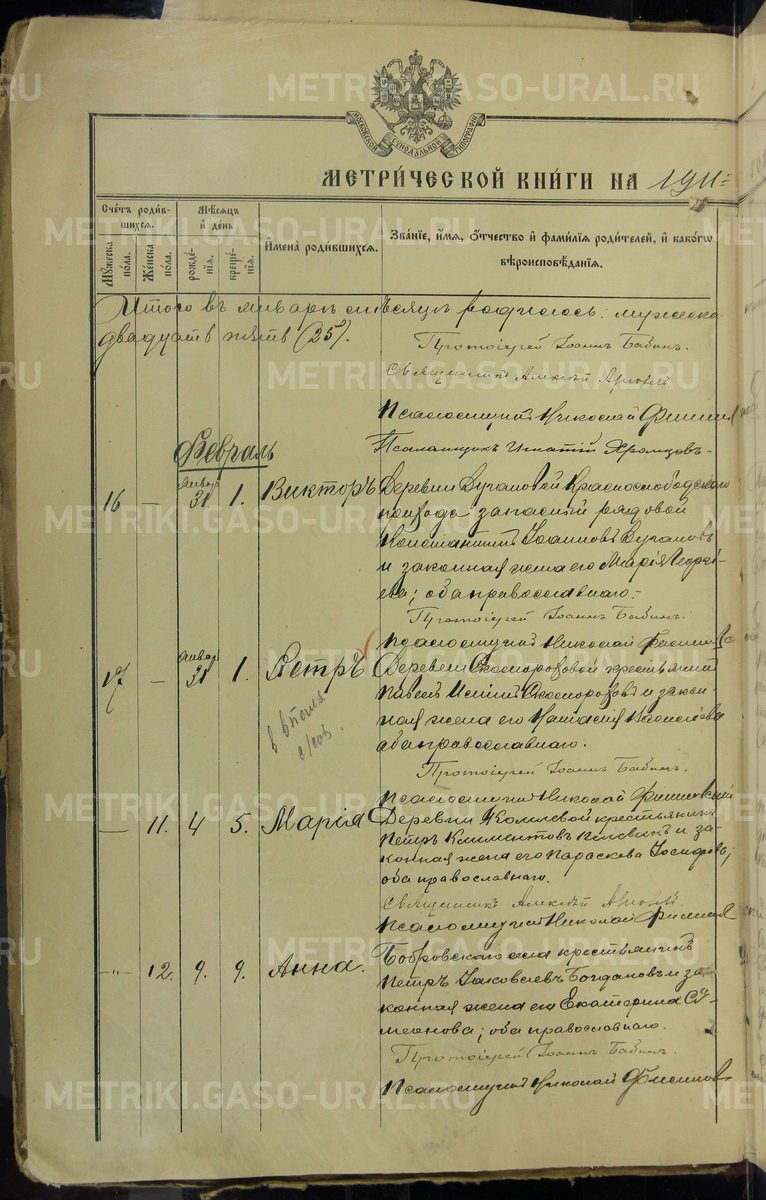 METRIKI.GASO-URAL.RU
МОСКОВСКОЙ СѴНОДАЛЬНОЙ ТИПОГРАФІИ
МЕТРИ́ЧЕСКОЙ КНИ́ГИ НА 1911=
Сче́тъ роди́вшихся.
Му́жеска по́ла.
Же́нска по́ла.
Мѣ́сяцъ и҆ де́нь
рожде́нїя.
креще́нїя.
И҆мена̀ роди́вшихся.
Зва́нїе, и҆́мя, ѻ҆́тчество и҆ фами́лїя роди́телей, и҆ како́гѡ
вѣроисповѣ́данїя.
Итого въ январѣ мѣсяцѣ родилось: мужеска
двадцать пять (25).
Протоіерей Іоаннъ Бабинъ.
Священникъ Алексѣй
Псаломщикъ Николай
Псаломщикъ Игнатій Хромцовъ
Февраль
16 — Январ 31 1. Викторъ Деревни Бугановой Краснослободскаго
прихода запасный рядовой
Константинъ Іоанновъ Бугановъ
и законная жена его Марія Георгі-
ева; оба православнаго.
Протоіерей Іоаннъ Бабинъ.
Псаломщикъ Николай
17 — Январ 31 1. Петръ Деревни Скоморохъовой крестьянинъ
Павелъ Скомороховъ и закон-
ная жена его Анастасія
оба православнаго.
Протоіерей Іоаннъ Бабинъ.
Псаломщикъ Николай
— 11. 4 5. Марія Деревни крестьянинъ
Петръ Климентовъ и за-
конная жена его Параскева Іосифова;
оба православнаго.
Священникъ Алексѣй
Псаломщикъ Николай
—"— 12. 9. 9. Анна. Бобровскаго села крестьянинъ
Петръ Іаковлевъ Богдановъ и за-
конная жена его Екатерина Сѵ-
меонова; оба православнаго.
Протоіерей Іоаннъ Бабинъ.
Псаломщикъ Николай